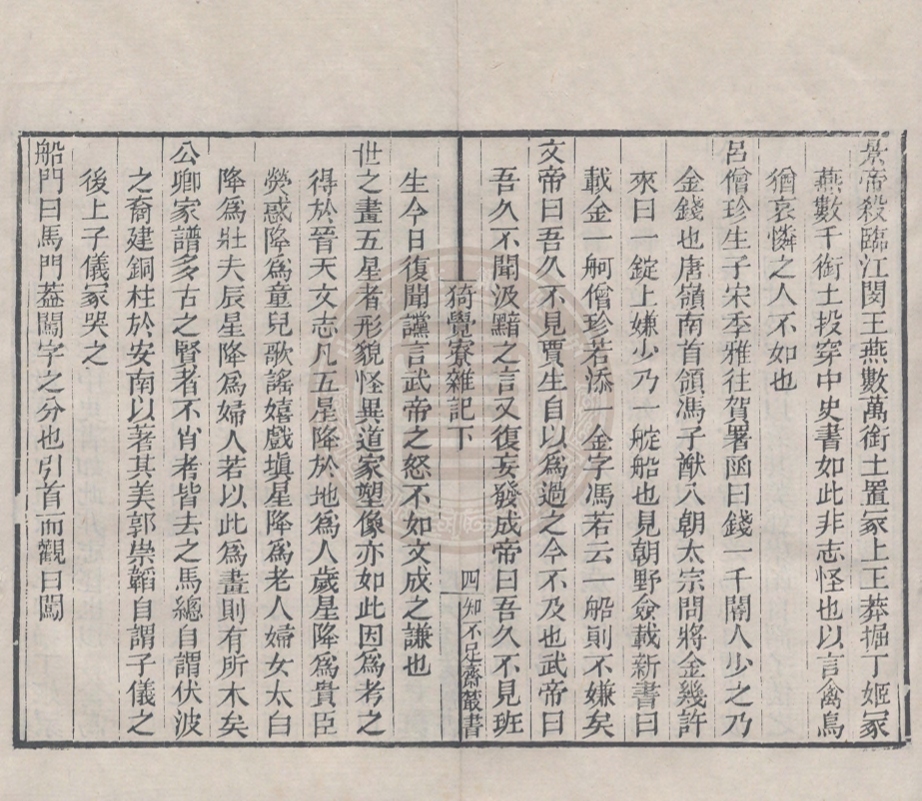 景帝殺臨江閔王燕數萬銜土置冢上王莽掘丁姬冢
燕數千銜土投穿中史書如此非志怪也以言禽鳥
猶哀憐之人不如也
呂僧珍生子宋季雅往賀署函曰錢一千閽人少之乃
金錢也唐嶺南首領馮子猷入朝太宗問將金幾許
來曰一錠上嫌少乃一艇船也見朝野僉載新書曰
載金一舸僧珍若添一金字馮若云一船則不嫌矣
文帝曰吾久不見賈生自以為過之今不及也武帝曰
吾久不聞汲黯之言又復妄發成帝曰吾久不見班
猗覺寮雜記下
四
知不足齋叢書
生今日復聞讜言武帝之怒不如文成之謙也
世之畫五星者形貌怪異道家塑像亦如此因為考之
得於晉天文志凡五星降於地為人歲星降為貴臣
熒惑降為童兒歌謠嬉戲塡星降為老人婦女太白
降為壯夫辰星降為婦人若以此為畫則有所木矣
公卿家譜多古之賢者不肖者皆去之馬總自謂伏波
之裔建銅柱於安南以著其美郭崇韜自謂子儀之
後上子儀冢哭之
船門曰馬門葢闖字之分也引首而觀曰闖